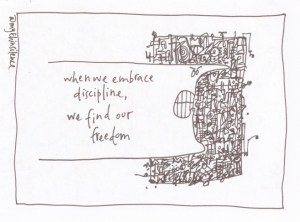 when we embrace
discipline,
we find our
freedom